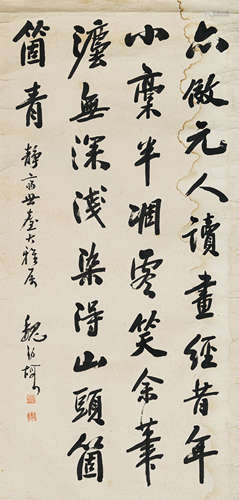 亦倣元人讀畫經昔年
小稾半凋零笑余筆
瀋無深淺染得山頭箇
箇青
靜齋世臺大雅屬
魏